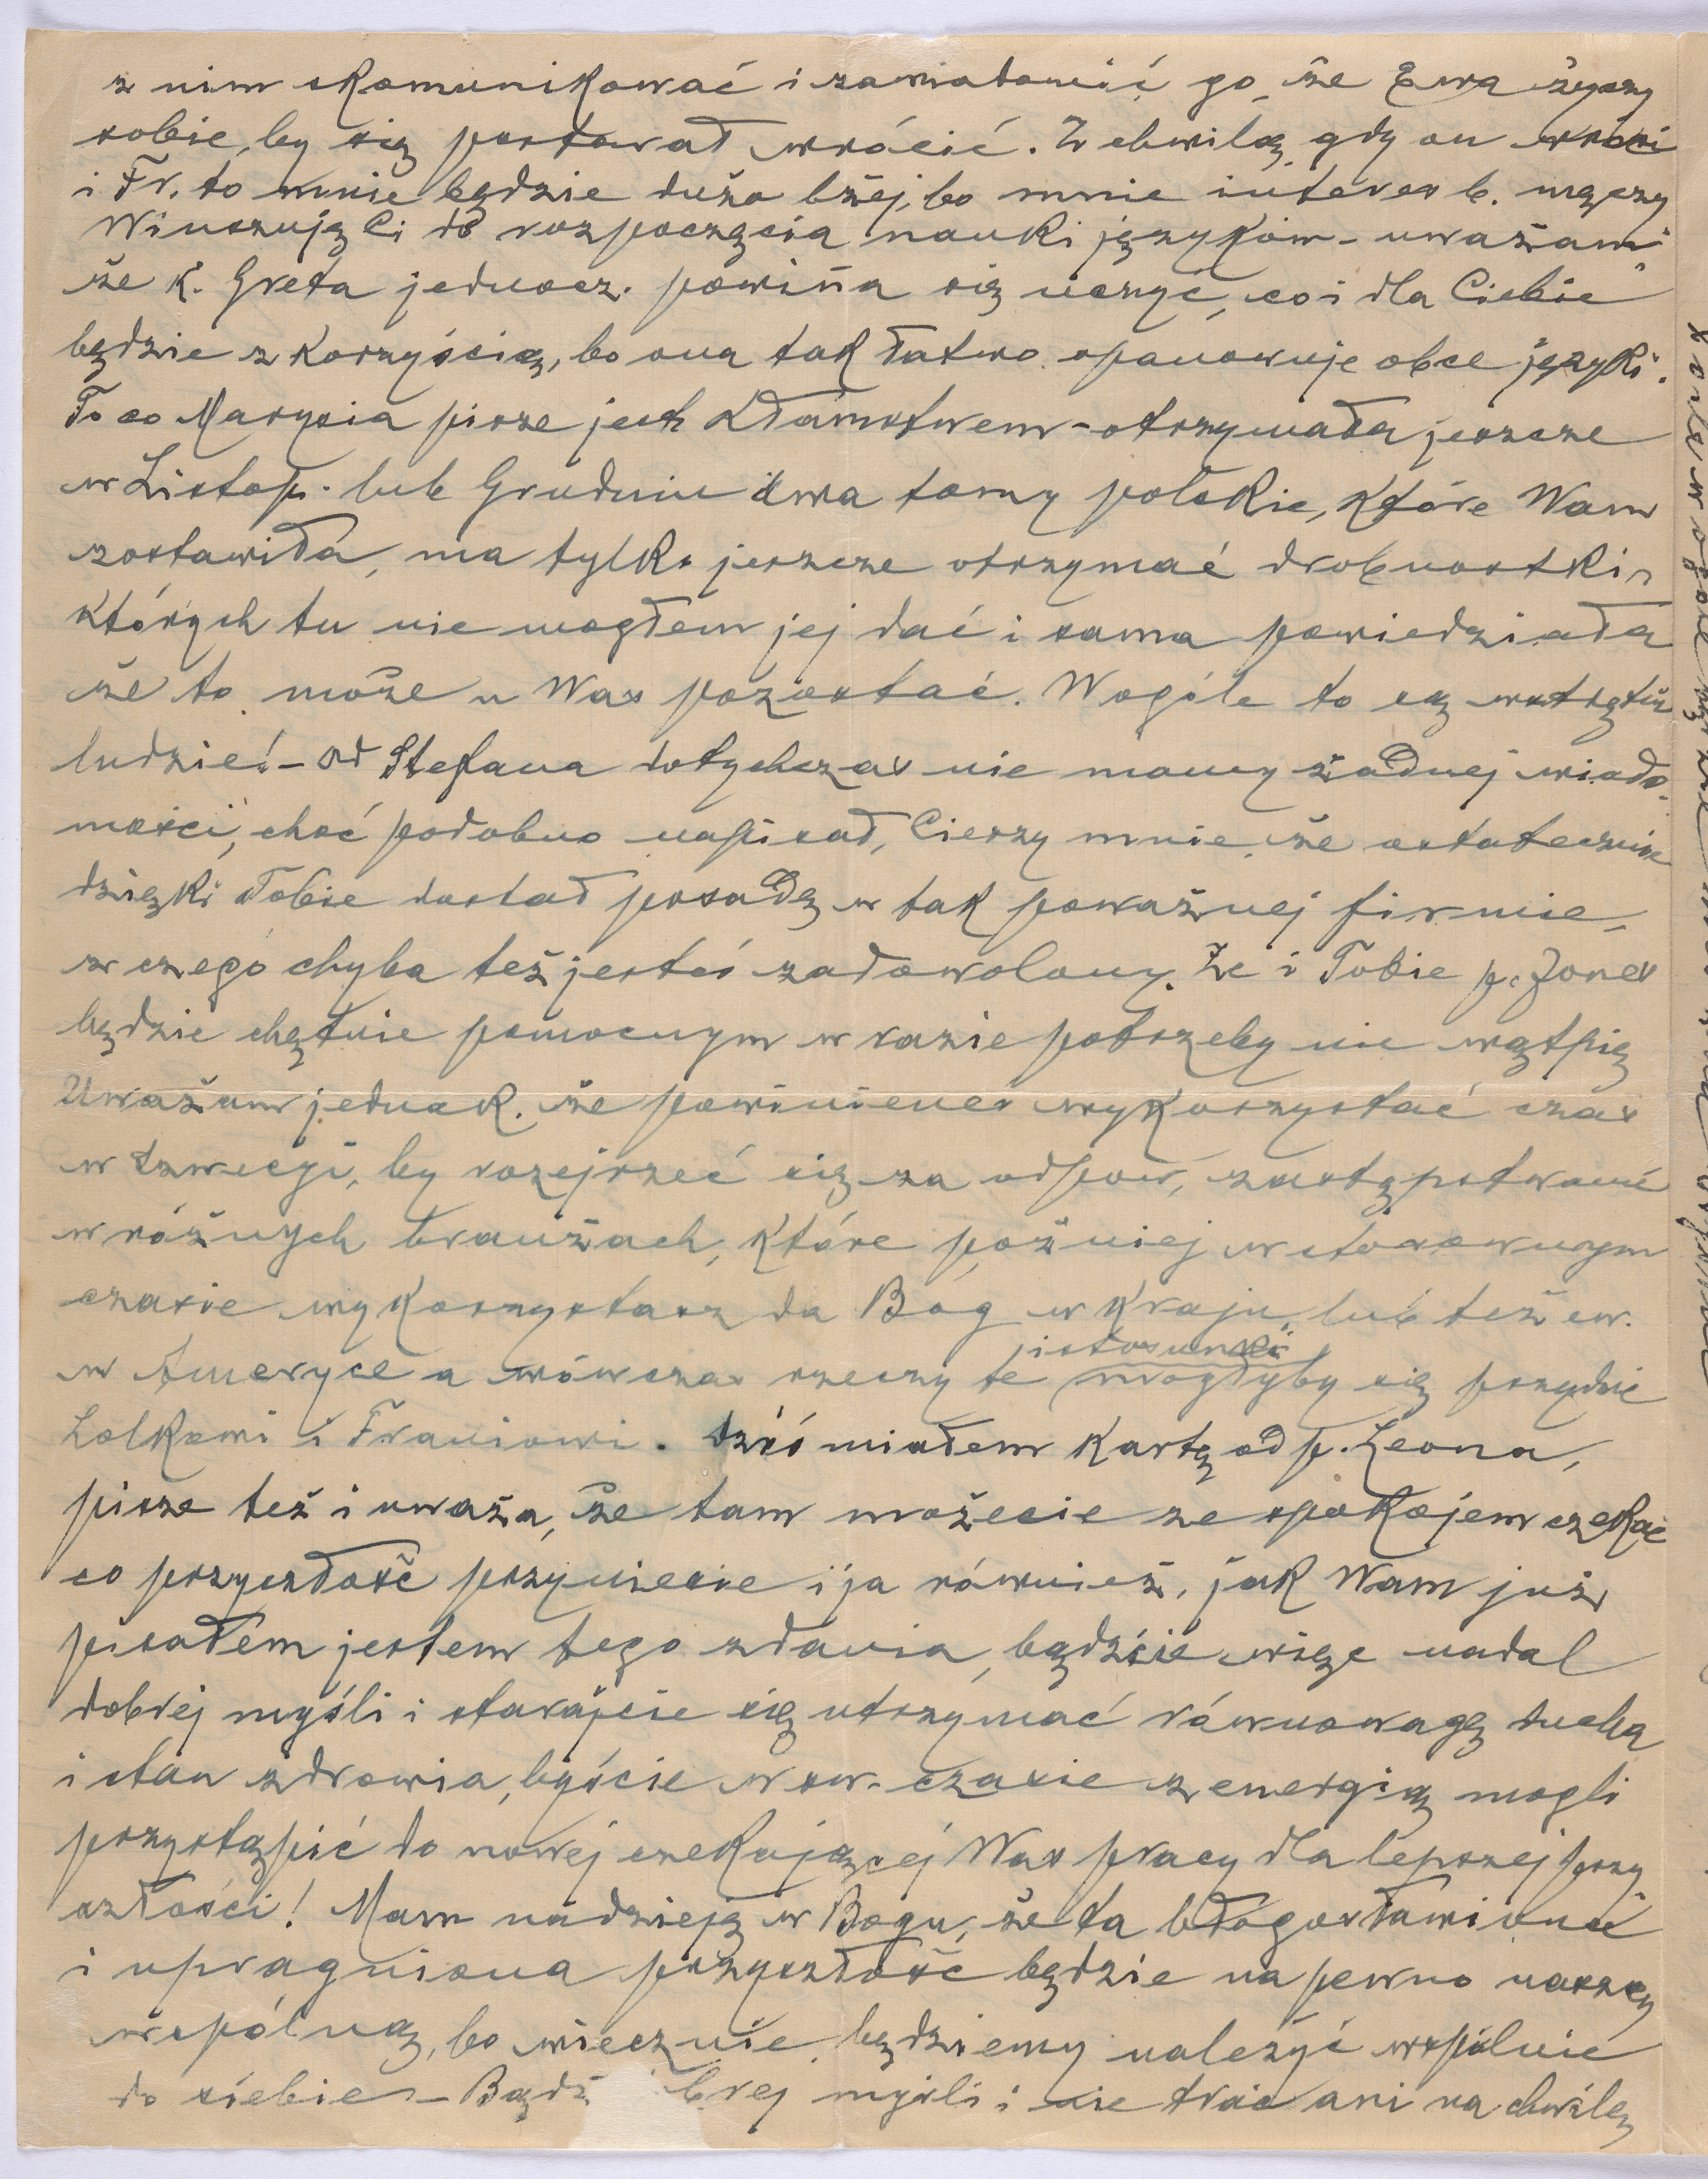 z nim skomunikować i zawiadomić go, że Ewa życzy
sobie, by się postarał wrócić. Z chwilą gdy on wróci
i Fr. to mnie będzie dużo lżej, bo mnie interes b. męczy
Winszuję Ci do rozpoczęcia nauki języków - uważam
że k. Greta jednocz. powinna się uczyć, co i dla Ciebie
będzie z korzyścią, bo ona tak łatwo opanowuje obce języki.
To co Marysia pisze jest kłamstwem - otrzymała jeszcze
w Listop. lub Grudniu dwa tomy polskie, które Wam
zostawiła, ma tylko jeszcze otrzymać drobnostki,
których tu nie mogłem jej dać i sama powiedziała
że to może u Was pozostać. Wogóle to są wstrętni
ludzie! - Od Stefana dotychczas nie mamy żadnej wiado-
mości, choć podobno napisał, Cieszy mnie, że ostatecznie
dzięki Tobie dostał posadę w tak poważnej firmie,
z czego chyba też jesteś zadowolony. Że i Tobie p. Jones
będzie chętnie pomocnym w razie potrzeby nie wątpię
Uważam jednak, że powinieneś wykorzystać czas
w Szwecji, by rozejrzeć się za odpow. zastępstwami
w różnych branżach, które później w stosownym
czasie wykorzystasz da Bóg w kraju, lub też ew.
w Ameryce a wówczas rzeczy te mogłyby się przydać
i stosunki
Lolkowi i Franiowi. Dziś miałem kartę od p. Leona,
pisze też i uważa, że tam możecie ze spokojem czekać
co przyszłość przyniesie i ja również, jak Wam już
pisałem jestem tego zdania, bądźcie więc nadal
dobrej myśli i starajcie się utrzymać równowagę ducha
i stan zdrowia, byście w sw. czasie z energią mogli
przystąpić do nowej czekającej Was pracy dla lepszej przy
szłości! Mam nadzieję w Bogu, że ta błogosławiona
i upragniona przyszłość będzie na pewno naszą
wspólną, bo wiecznie będziemy należyć wspólnie
do siebie - Bądź brej myśli i nie trać ani na chwilę